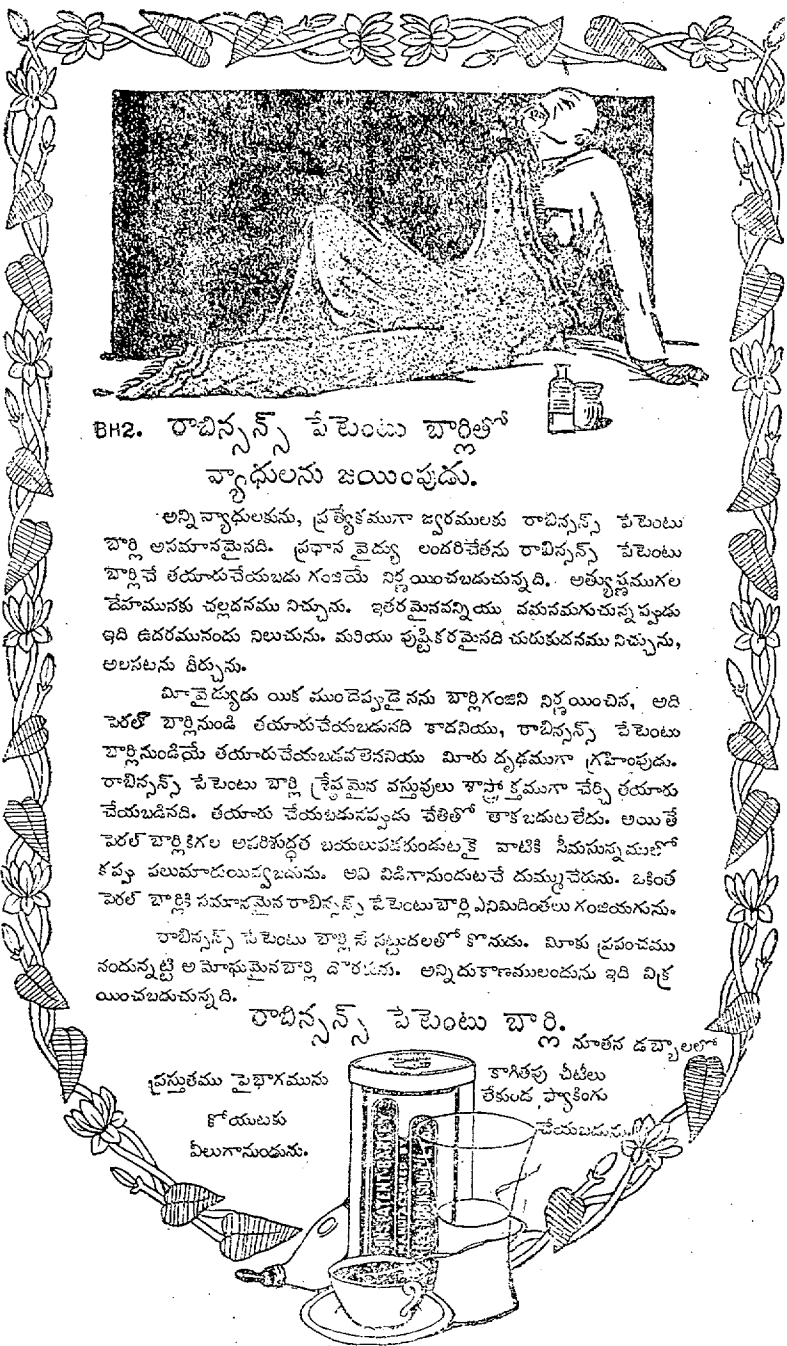 BH2. రాబిన్సన్స్ పేటెంటు బార్లితో
వ్యాధులను జయింపుడు.
అన్నివ్యాధులకును, ప్రత్యేకముగా జ్వరములకు రాబిన్సన్స్ పేటెంటు
బార్లి అసమానమైనది. ప్రధాన వైద్యు లందరిచేతను రాబిన్సన్స్ పేటెంటు
బార్లిచే తయారుచేయబడు గంజియే నిర్ణయించబడుచున్నది. అత్యుష్ణముగల
దేహమునకు చల్లదనము నిచ్చును. ఇతరమైనవన్నియు వమనమగుచున్నప్పుడు
ఇది ఉదరమునందు నిలుచును. మరియు పుష్టికరమైనది చురుకుదనము నిచ్చును,
అలసటను తీర్చును.
మీవైద్యుడు యిక ముందెప్పుడైనను బార్లిగంజిని నిర్ణయించిన, అది
పెరల్ బార్లినుండి తయారుచేయబడునది కాదనియు, రాబిన్సన్స్ పేటెంటు
బార్లినుండియే తయారుచేయబడవలెననియు మీరు దృఢముగా గ్రహింపుడు.
రాబిన్సన్స్ పేటెంటు బార్లి శ్రేష్ఠమైన వస్తువులు శాస్త్రోక్తముగా చేర్చి తయారు
చేయబడినది. తయారు చేయబడునప్పుడు చేతితో తాకబడుట లేదు. అయితే
పెరల్ బార్లికిగల అపరిశుద్ధత బయలుపడకుండుటకై వాటికి సీమసున్నములో
కప్పు పలుమారుయివ్వబడును. అవి విడిగానుండుటచే దుమ్ముచేరును. ఒకింత
పెరల్ బార్లికి సమానమైన రాబిన్సన్స్ పేటెంటుబార్లి ఎనిమిదింతలు గంజియగును.
రాబిన్సన్స్ పేటెంటు బార్లినే పట్టుదలతో కొనుడు. మీకు ప్రపంచము
నందున్నట్టి అమోఘమైనబార్లి దొరకును. అన్నిదుకాణములందును ఇది విక్ర
యించబడుచున్నది.
రాబిన్సన్స్ పేటెంటు బార్లి.
నూతన డబ్బాలలో
ప్రస్తుతము పైభాగమును
కోయుటకు
వీలుగానుండును.
కాగితపు చీటీలు
లేకుండ ప్యాకింగు
చేయబడును.